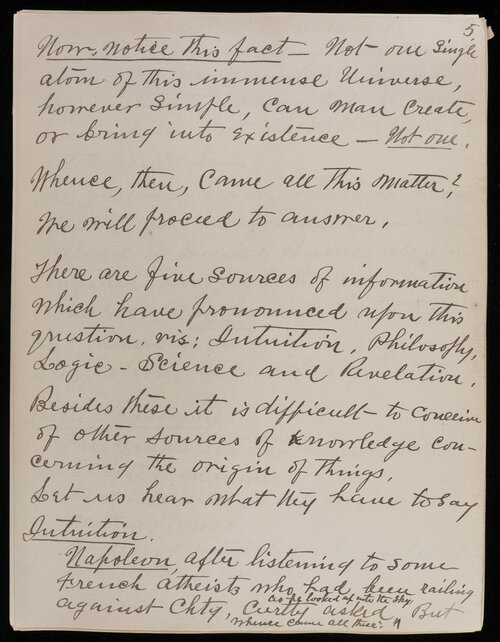 5
Now, notice this fact – Not one single
atom of this immense Universe,
however simple, can man create,
or bring into existence – Not one.
Whence, then, came all this matter?
We will proceed to answer.
There are five sources of information
which have pronounced upon this
question. vis: Intuition, Philosophy,
Logic – Science and Revelation.
Besides these it is difficult to conceive
of other sources of knowledge con-
cerning the origin of things.
Let us hear what they have to say
Intuition.
Napoleon, after listening to some
French atheists who had been railing
as he looked up into the sky
against Chty, curtly asked But
whence came all these?